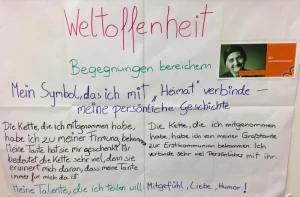 Weltoffenheit
Begegnungen bereichern
Mein Symbol, das ich mit "Heimat" verbinde –
meine persönliche Geschichte
Die Kette, die ich mitgenommen habe,
habe ich zu meiner Firmung bekommen
Meine Tante hat sie mir geschenkt. Mir
bedeutet die Kette sehr viel, denn sie
erinnert mich daran, dass meine Tante
immer für mich da ist.
Die Kette, die ich mitgenommen
habe, habe ich von meiner Großtante
zur Erstkommunion bekommen. Ich
verbinde sehr viel Persönliches mit ihr.
Meine Talente, die ich teilen will: Mitgefühl, Liebe, Humor!